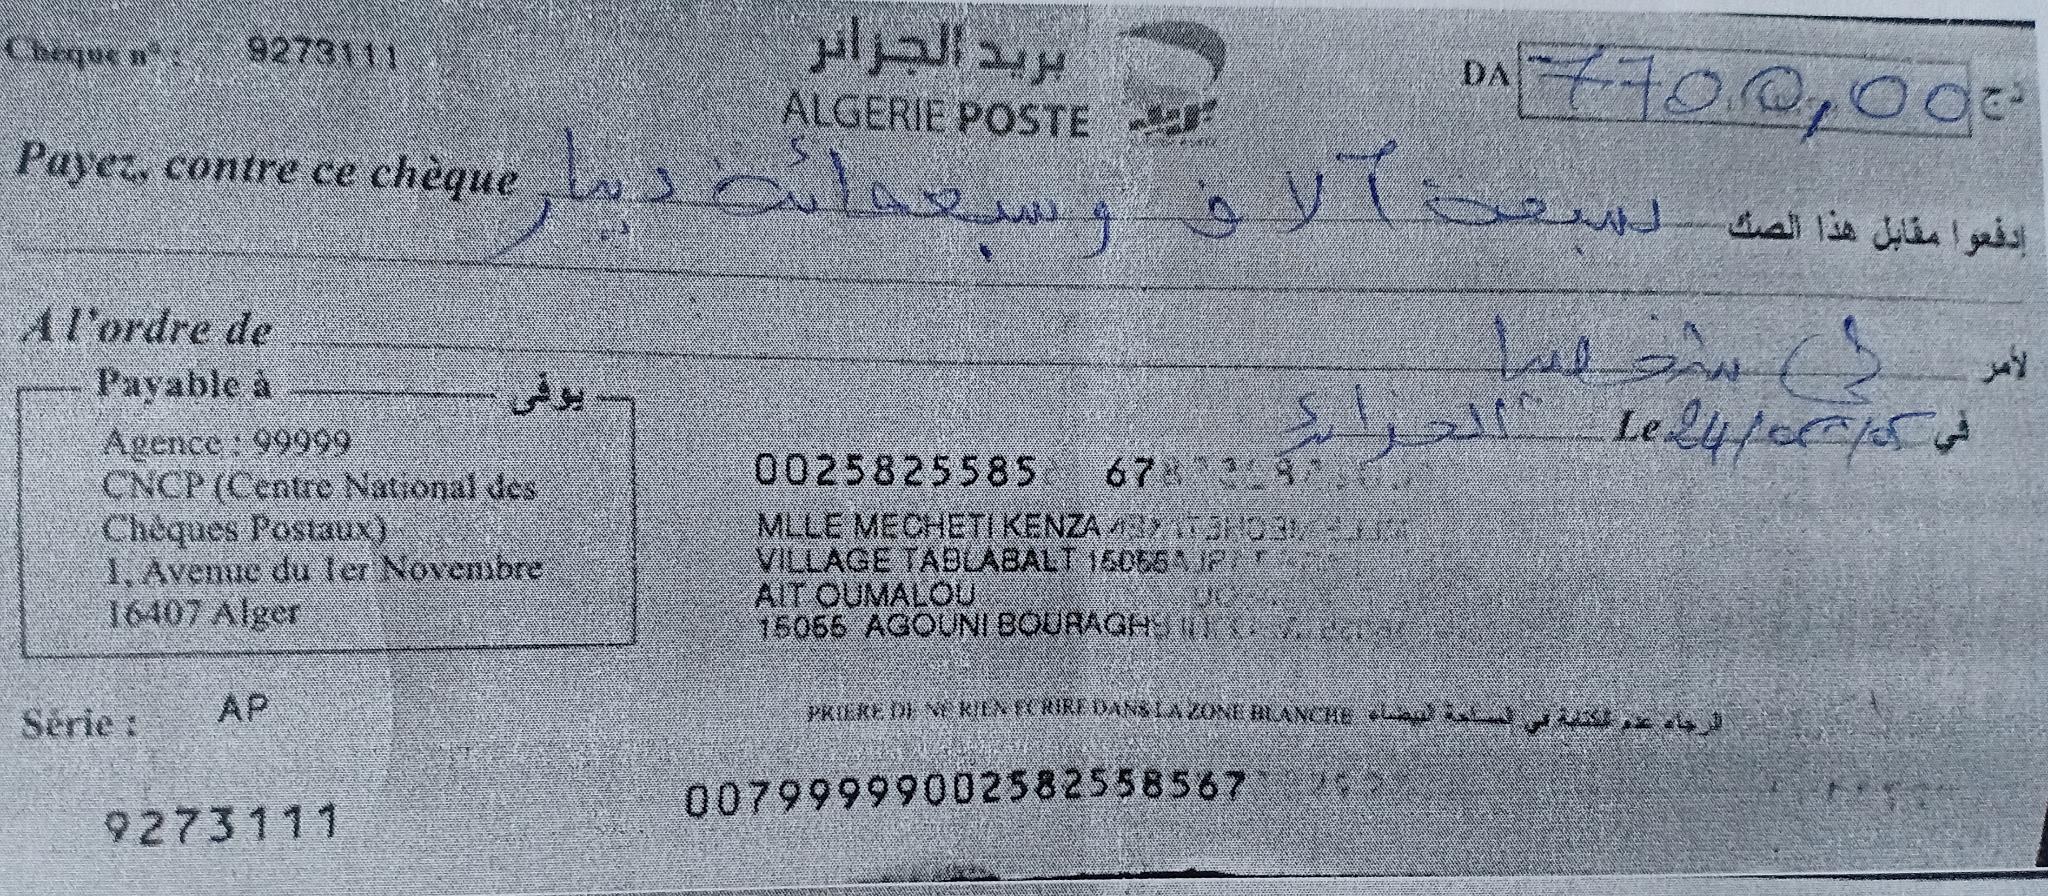 Chèque n° : 9273111
بريد الجزائر
ALGERIE POSTE
DA 7700,00 دج
Payez, contre ce chèque
إدفعوا مقابل هذا الصك سبعة آلاف وسبعمائة دينار
A l'ordre de
لأمر لي شخصيا
Payable à يوفى
الجزائر Le 24/05/05 في
Agence : 99999
CNCP (Centre National des
Chèques Postaux)
1, Avenue du 1er Novembre
16407 Alger
0025825585 67
MLLE MECHETI KENZA
VILLAGE TABLABALT 15055
AIT OUMALOU
15055 AGOUNI BOURAGH
Série : AP
PRIERE DE NE RIEN ECRIRE DANS LA ZONE BLANCHE الرجاء عدم الكتابة في المساحة البيضاء
9273111
00799999002582558567